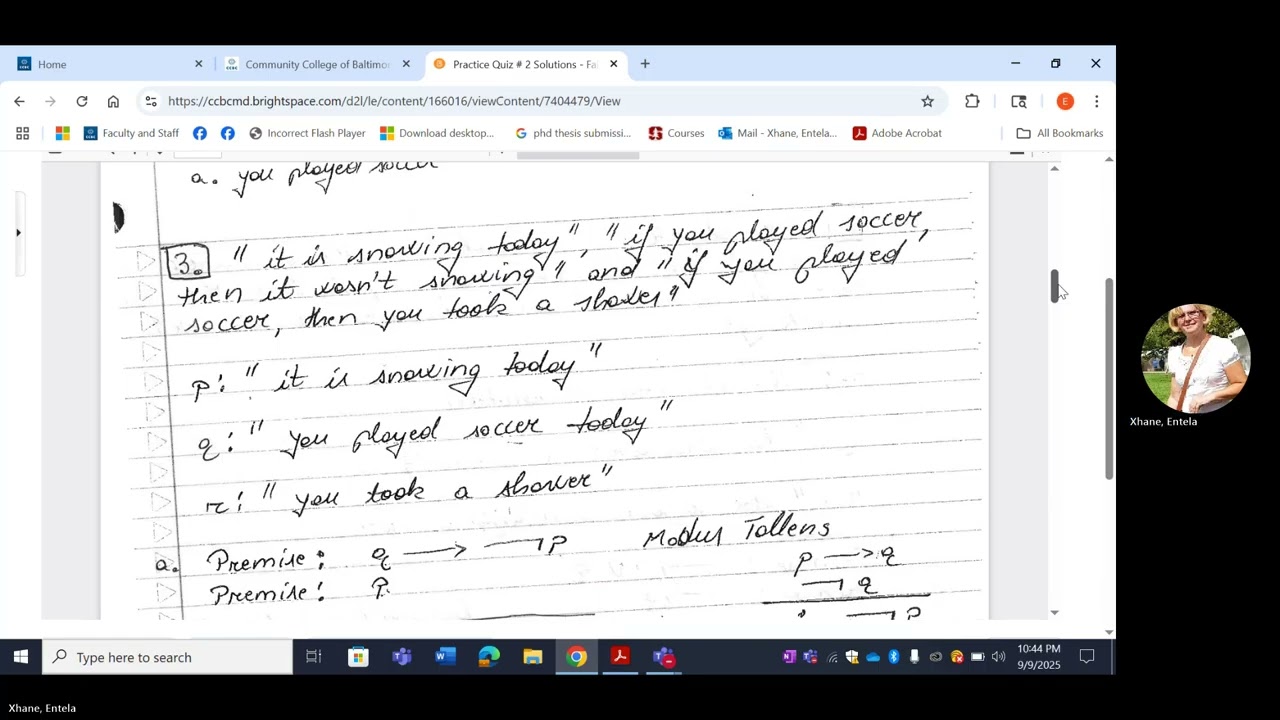 Home
Community College of Baltimo
Practice Quiz # 2 Solutions - Fa
https://ccbcmd.brightspace.com/d2l/le/content/166016/viewContent/7404479/View
Faculty and Staff
Incorrect Flash Player
Download desktop...
phd thesis submissi...
Courses
Mail - Xhane, Entela...
Adobe Acrobat
All Bookmarks
a. you played soccer
3. "it is snowing today", "if you played soccer,
then it wasn't snowing" and "if you played
soccer, then you took a shower"
p: "it is snowing today"
q: "you played soccer today"
r: "you took a shower"
a. Premise: q → ¬p Modus Tollens
p → q
Premise: p ¬q
¬p
Xhane, Entela
Type here to search
10:44 PM
9/9/2025
Xhane, Entela